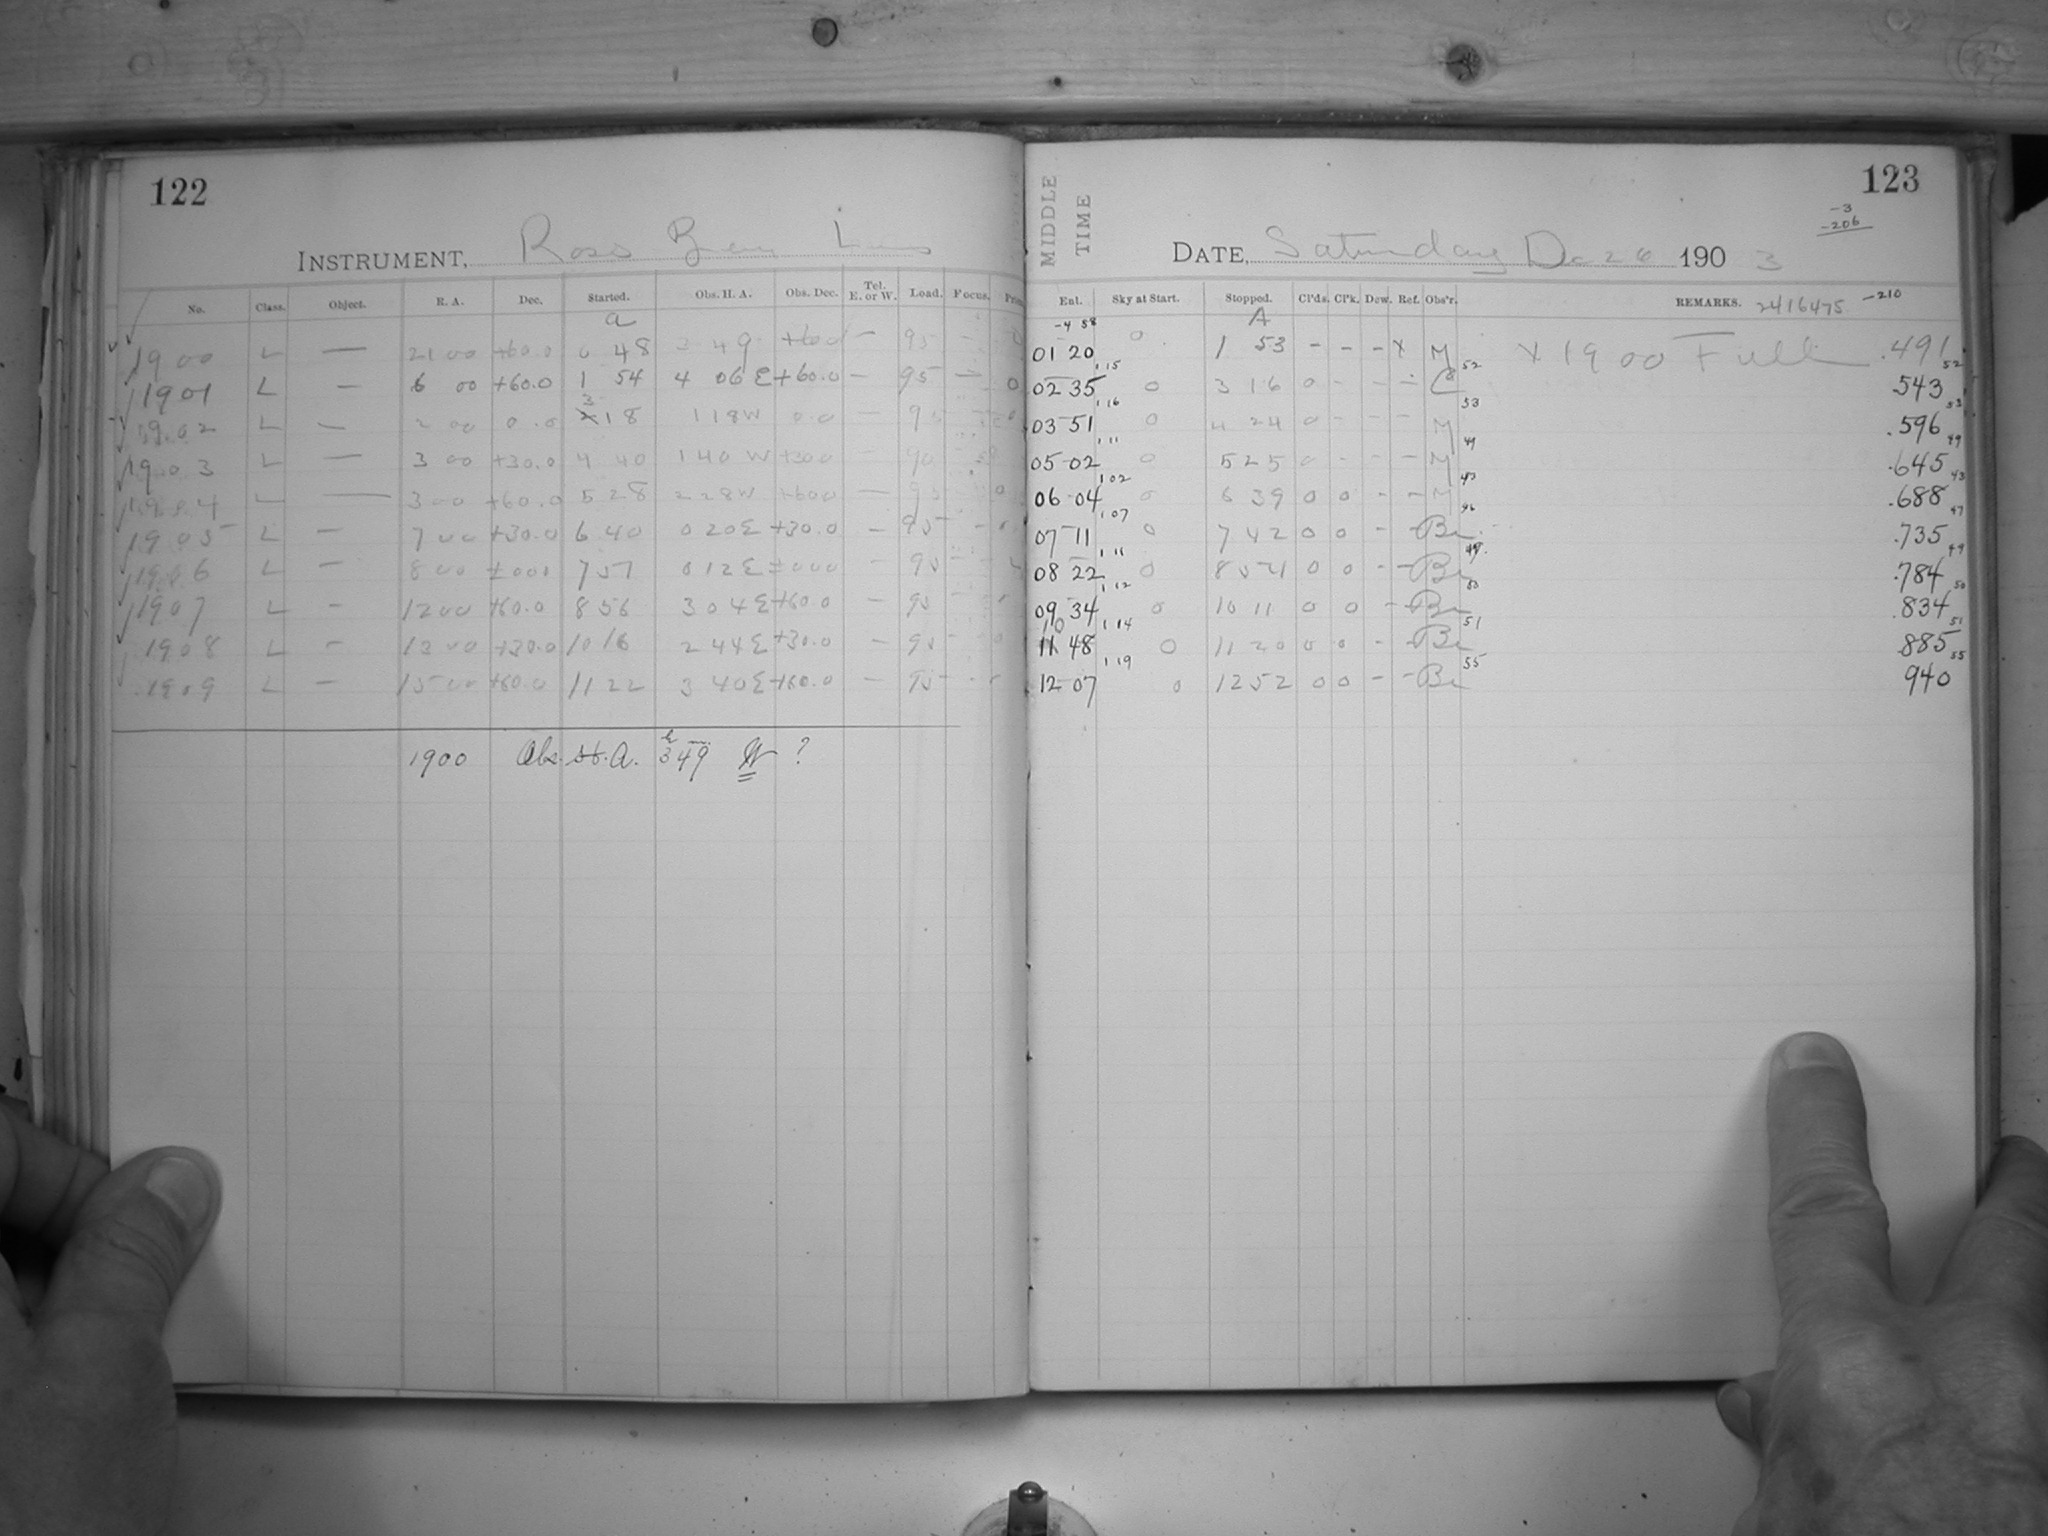 122
INSTRUMENT, Ross
No. Class. Object. R. A. Dec. Started. Obs. H. A. Obs. Dec. Tel. E. or W. Load. Focus.
a
1900 L — 21 00 +60.0 0 48 3 49 +60.0 — 95 —
1901 L — 6 00 +60.0 1 54 4 06 E +60.0 — 95 — 0
1902 L — 2 00 0.0 3 18 1 18 W 0.0 — 95
1903 L — 3 00 +30.0 4 40 1 40 W +30.0 — 90
1904 L — 3 00 +60.0 5 28 2 28 W +60.0 — 95
1905 L — 7 00 +30.0 6 40 0 20 E +30.0 — 95 -
1906 L — 8 00 7 57 0 12 E — 95 -
1907 L — 12 00 +60.0 8 56 3 04 E +60.0 — 95 -
1908 L — 13 00 +30.0 10 16 2 44 E +30.0 — 95 -
1909 L — 15 00 +60.0 11 22 3 40 E +60.0 — 95 -
1900 Obs. H. A. 3h 49m W ?
123
-3
-206
MIDDLE TIME
DATE, Saturday Dec 26 1903
Ent. Sky at Start. Stopped. Cl'ds. Cl'k. Dew. Ref. Obs'r. REMARKS. 2416475 -210
-4 58 A
01 20 0 1 53 - - - x M x 1900 Full .491
1 15 52 52
02 35 0 3 16 0 - - - C .543
1 16 53 53
03 51 0 4 24 0 - - - M .596
1 11 49 49
05 02 0 5 25 0 - - - M .645
1 02 43 43
06 04 0 6 39 0 0 - - M .688
1 07 47
07 11 0 7 42 0 0 - - Be .735
1 11 49
08 22 0 8 54 0 0 - - Be .784
1 12 50 50
09 34 0 10 11 0 0 - - Be .834
1 14 51 51
10 48 0 11 20 0 0 - - Be .885
1 19 55 55
12 07 0 12 52 0 0 - - Be 940